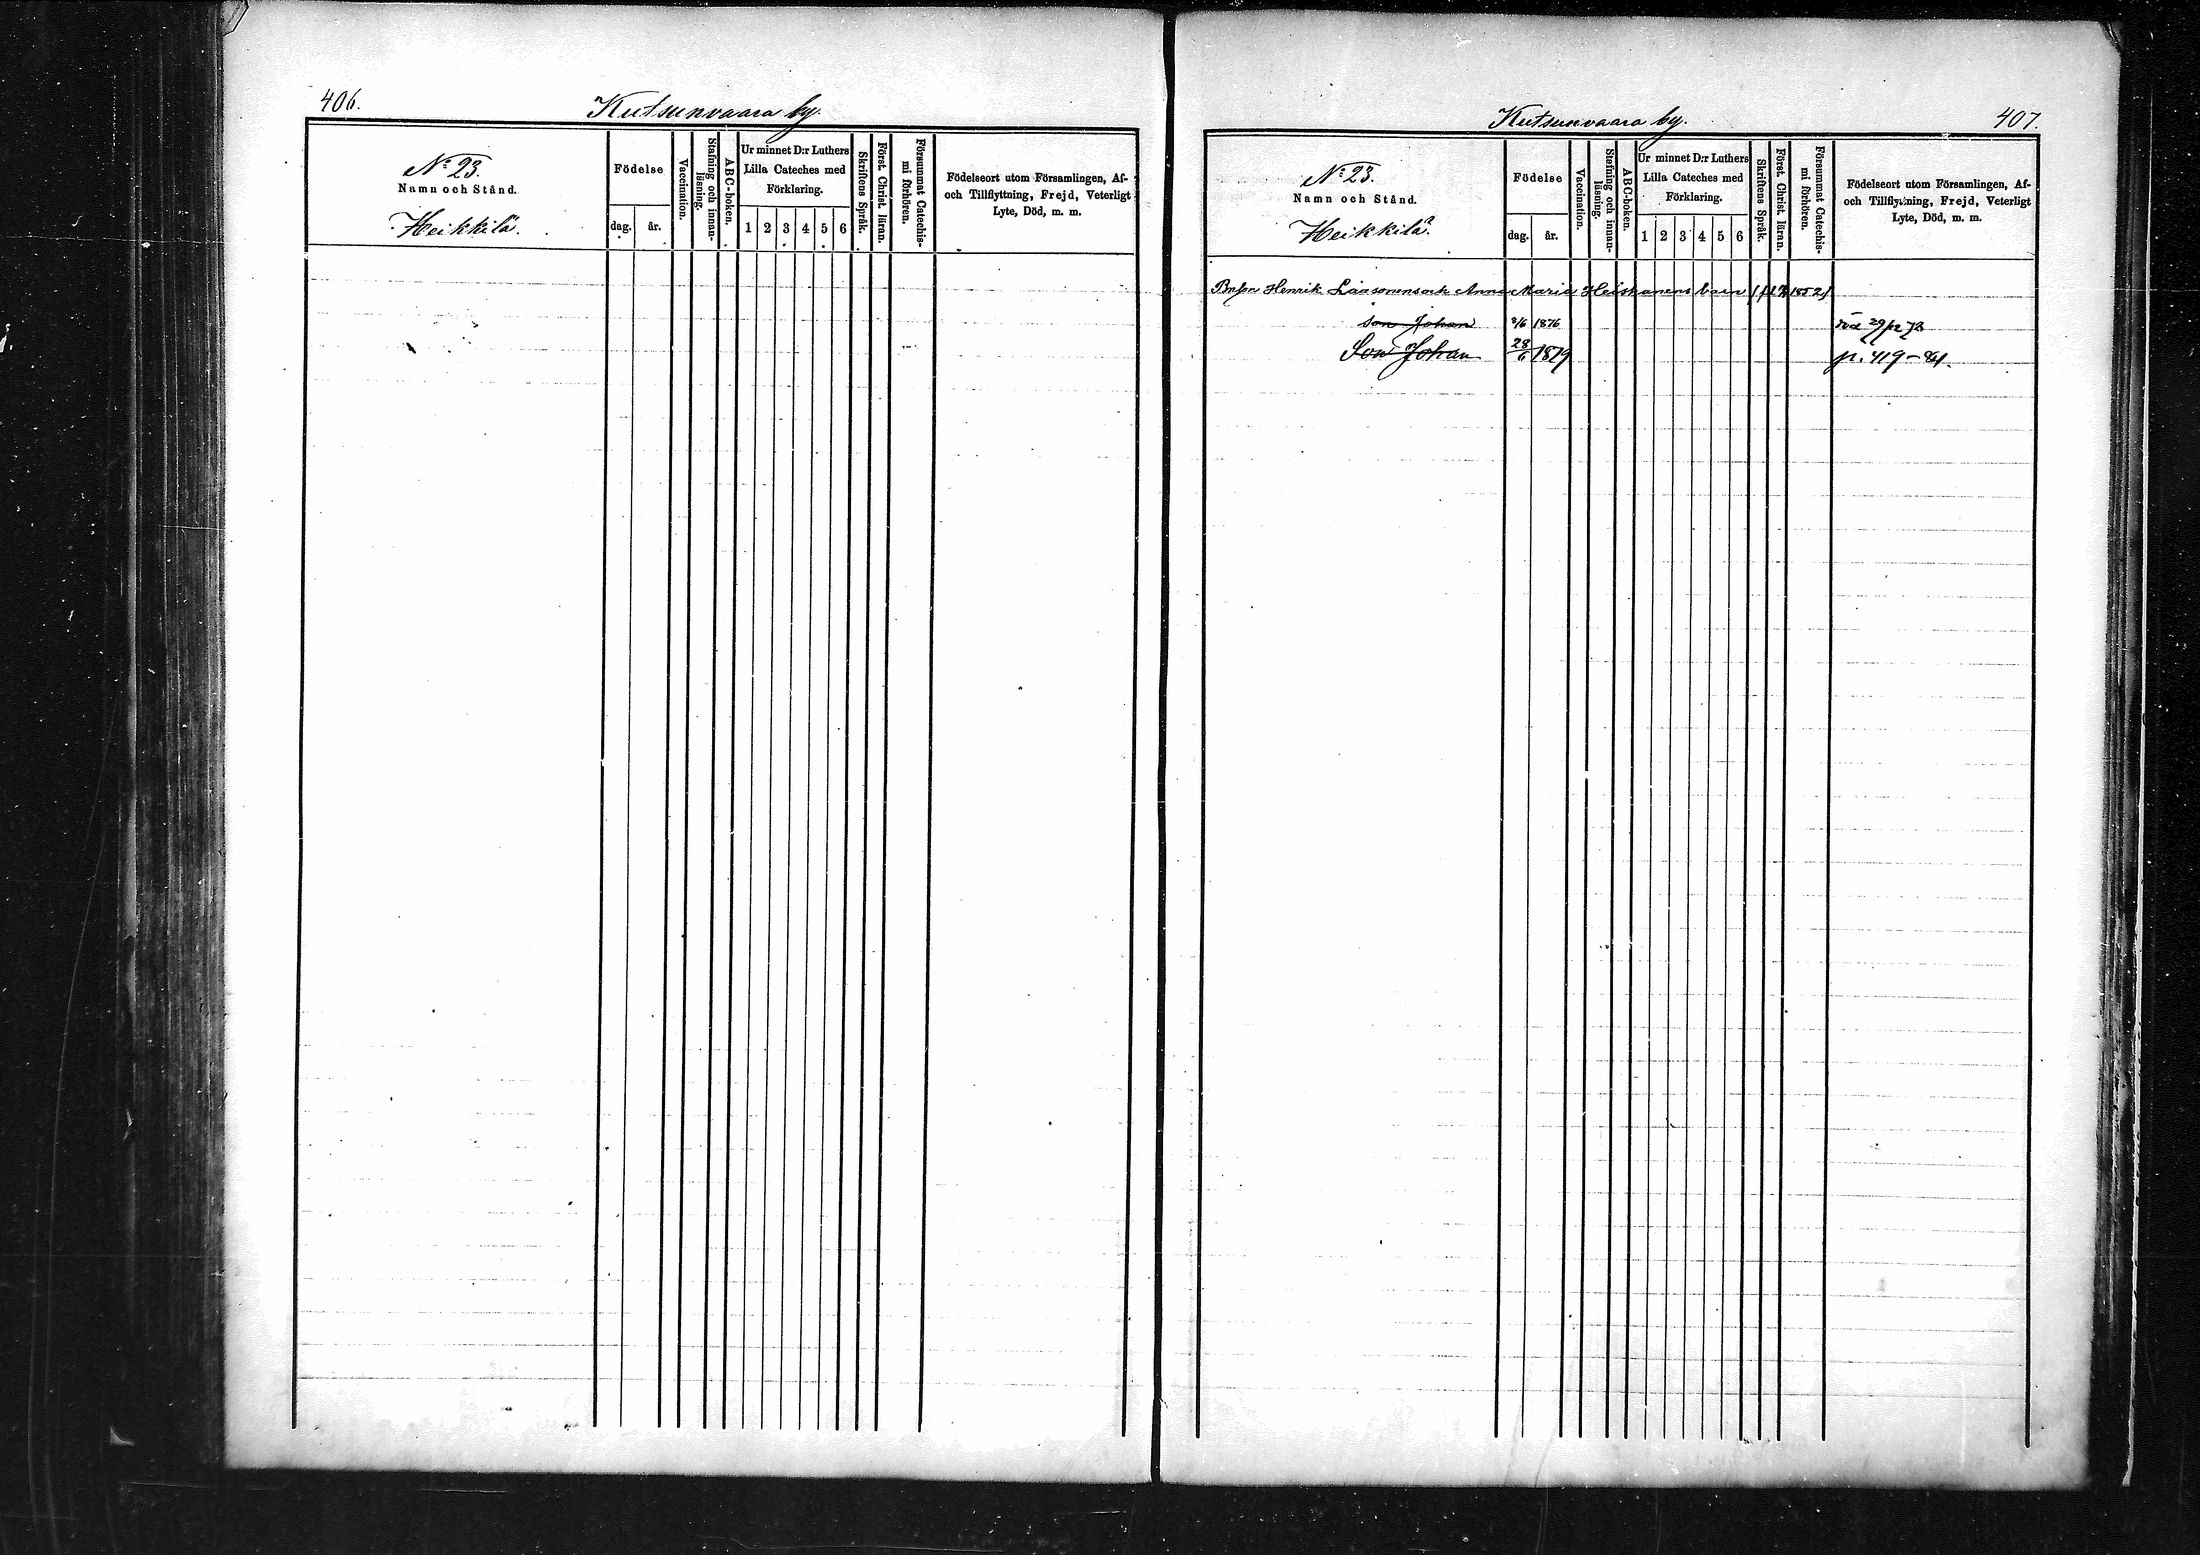 406.
Kutsunvaara by.
N:o 23.
Namn och Stånd.
Heikkilä.
Födelse
dag. år.
Vaccination.
Stafning och innan-
läsning.
ABC-boken.
Ur minnet D:r Luthers
Lilla Cateches med
Förklaring.
1 2 3 4 5 6
Skriftens Språk.
Först. Christ. läran.
Försummat Catechis-
mi förhören.
Födelseort utom Församlingen, Af-
och Tillflyttning, Frejd, Veterligt
Lyte, Död, m. m.
Kutsunvaara by.
407.
N:o 23.
Namn och Stånd.
Heikkilä.
Födelse
dag. år.
Vaccination.
Stafning och innan-
läsning.
ABC-boken.
Ur minnet D:r Luthers
Lilla Cateches med
Förklaring.
1 2 3 4 5 6
Skriftens Språk.
Först. Christ. läran.
Försummat Catechis-
mi förhören.
Födelseort utom Församlingen, Af-
och Tillflyttning, Frejd, Veterligt
Lyte, Död, m. m.
Henrik Laasonens och Anna Maria Heiskanens barn
son Johan 1876
Son Johan 28/6 1879 p. 419